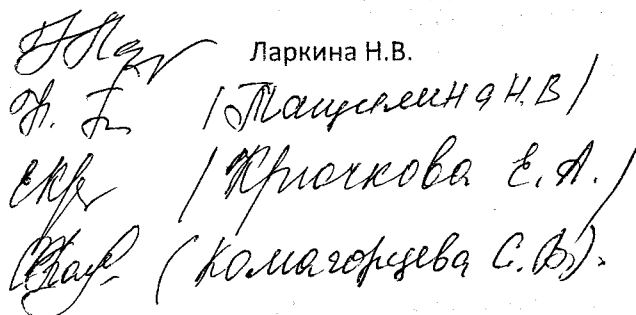 Ларкина Н.В.
/Тащилина Н.В/
/Крючкова Е.А./
(Комагорцева С.В.).